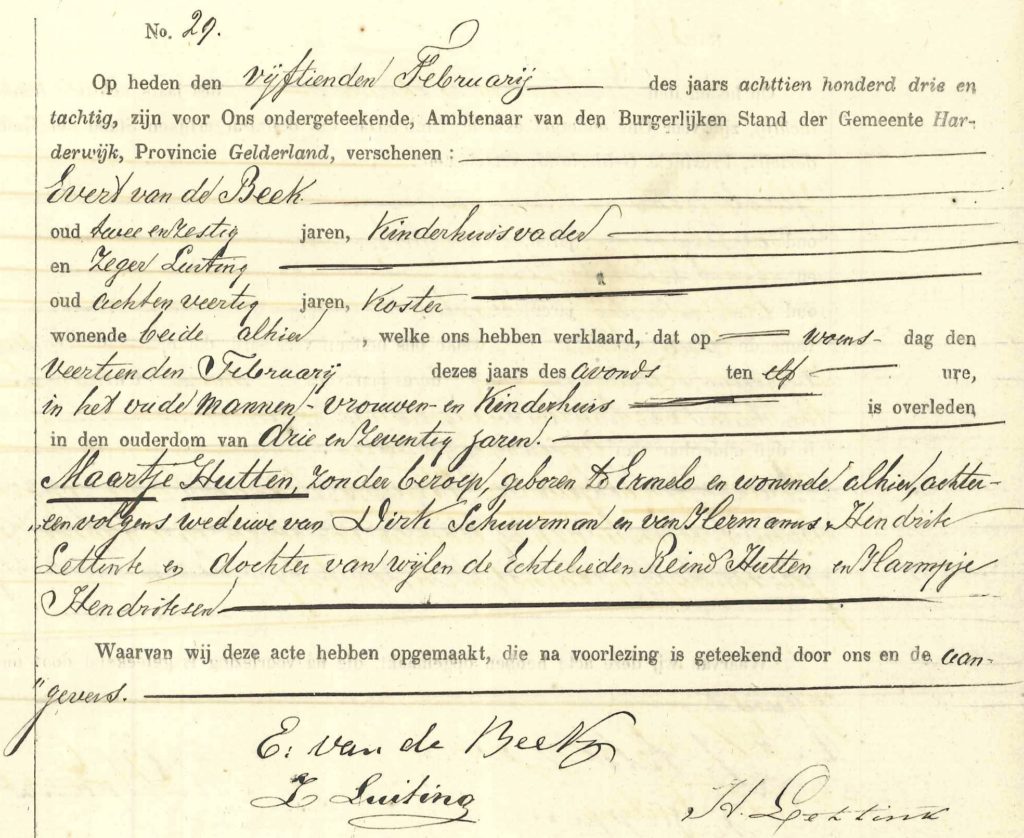 No. 29.
Op heden den vijftienden Februarij des jaars achttien honderd drie en
tachtig, zijn voor Ons ondergeteekende, Ambtenaar van den Burgerlijken Stand der Gemeente Har-
derwijk, Provincie Gelderland, verschenen :
Evert van de Beek
oud twee en zestig jaren, Kinderhuisvader
en Zeger Luiting
oud acht en veertig jaren, Koster
wonende beide alhier, welke ons hebben verklaard, dat op woens- dag den
veertienden Februarij dezes jaars des avonds ten elf ure,
in het oude mannen- vrouwen- en Kinderhuis is overleden
in den ouderdom van drie en zeventig jaren.
Maartje Hutten, zonder beroep, geboren te Ermelo en wonende alhier, achter-
„eenvolgens weduwe van Dirk Schuurman en van Hermanus Hendrik
Lettink en dochter van wijlen de Echtelieden Reind Hutten en Harmpje
Hendriksen
Waarvan wij deze acte hebben opgemaakt, die na voorlezing is geteekend door ons en de aan-
„gevers.
E: van de Beek
Z Luiting
H.